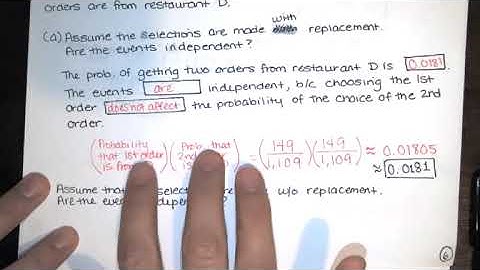 orders are from restaurant D.
with
(a) Assume the selections are made replacement.
Are the events independent?
The prob. of getting two orders from restaurant D is 0.0181.
The events are independent, b/c choosing the 1st
order does not affect the probability of the choice of the 2nd
order.
(Probability that 1st order is) (Prob. that 2nd is) = (149/1,109)(149/1,109) ≈ 0.01805
≈ 0.0181
Assume selection w/o replacement.
Are the
6